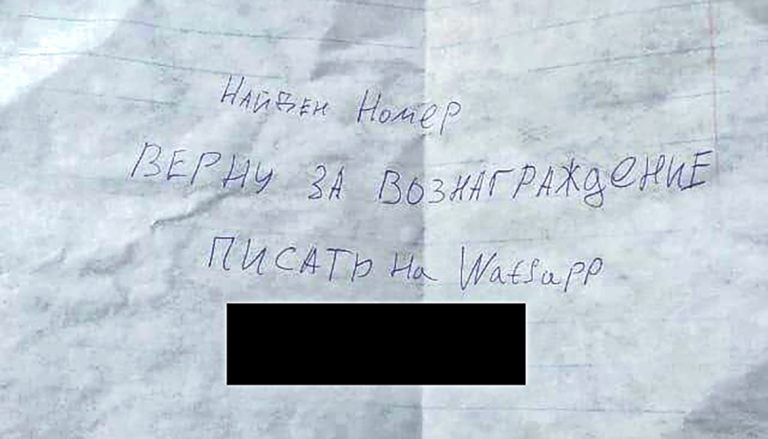 НАЙДЕН НОМЕР
ВЕРНУ ЗА ВОЗНАГРАЖДЕНИЕ
ПИСАТЬ НА Watsapp